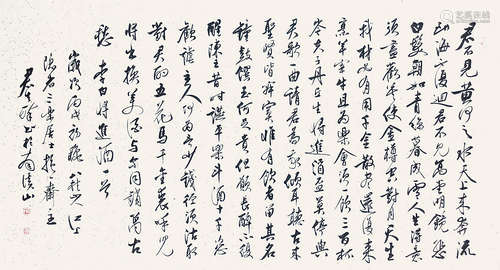 君不見黃河之水天上來奔流
海不復迴君不見高堂明鏡悲
白髮朝如青絲暮成雪人生得意
須盡歡莫使金樽空對月天生
我材必有用千金散盡還復來
烹羊宰牛且為樂會須一飲三百杯
岑夫子丹丘生將進酒盃莫停與
君歌一曲請君為我傾耳聽古來
聖賢皆寂寞惟有飲者留其名
鐘鼓饌玉何足貴但願長醉不願
醒陳王昔時讌平樂斗酒十千恣
歡謔主人何為言少錢徑須沽取
對君酌五花馬千金裘呼兒
將出換美酒與爾同銷萬古
愁 李白將進酒一首
歲次丙戌初秋 江上
隱者三樂居士於 齋 王
君 書於南溪山